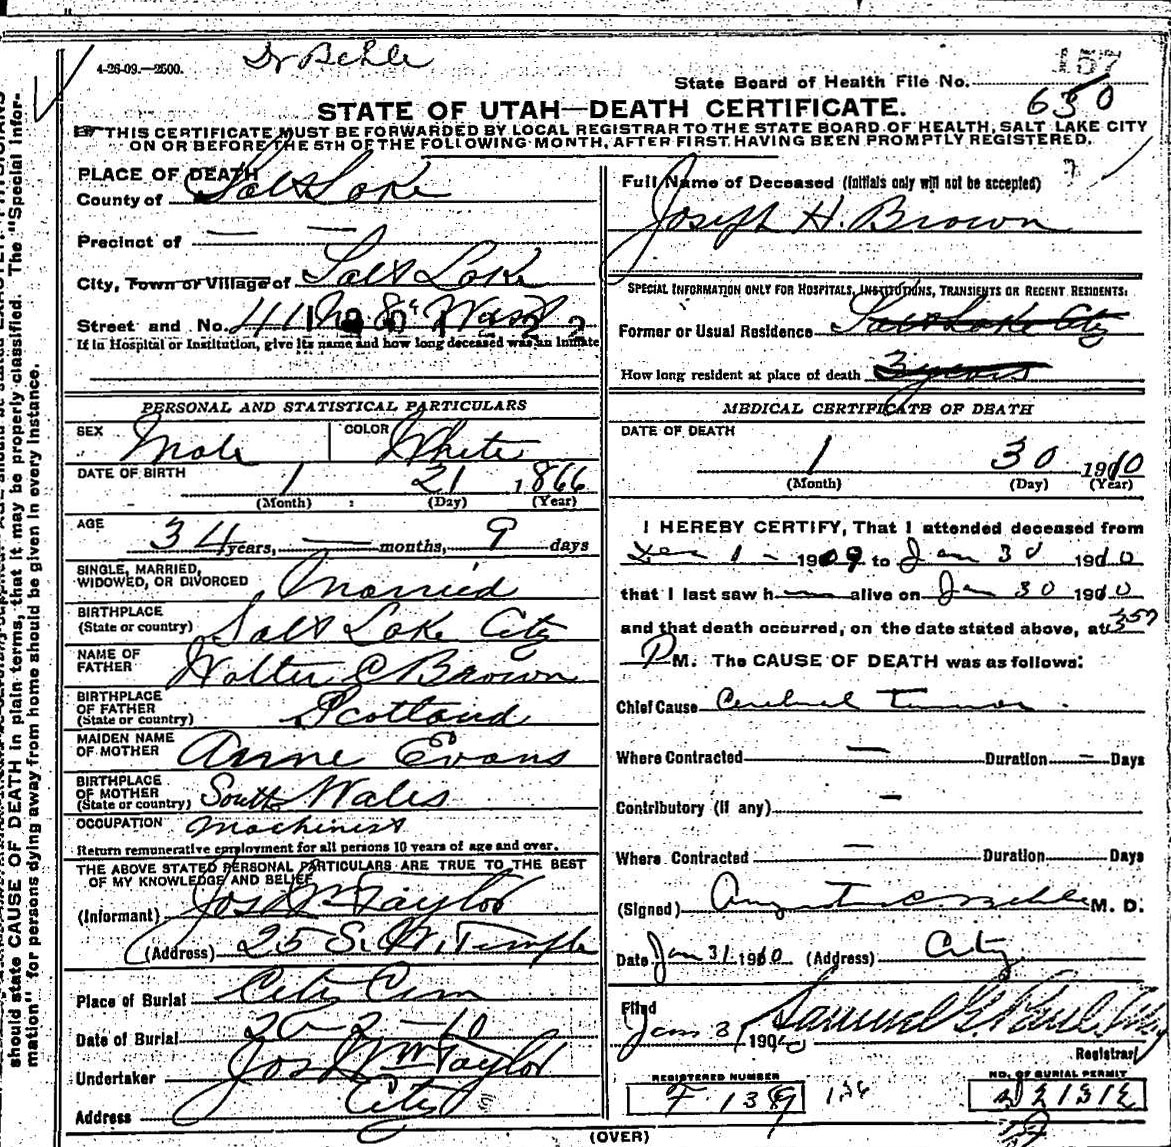 4-26-09.—2500.
Dr Behle
157
State Board of Health File No.
630
STATE OF UTAH—DEATH CERTIFICATE.
THIS CERTIFICATE MUST BE FORWARDED BY LOCAL REGISTRAR TO THE STATE BOARD OF HEALTH, SALT LAKE CITY
ON OR BEFORE THE 5TH OF THE FOLLOWING MONTH, AFTER FIRST HAVING BEEN PROMPTLY REGISTERED.
PLACE OF DEATH
County of Salt Lake
Precinct of — —
City, Town or Village of Salt Lake
Street and No. 411 No 8th West
If in Hospital or Institution, give its name and how long deceased was an inmate
PERSONAL AND STATISTICAL PARTICULARS
SEX Male COLOR White
DATE OF BIRTH 1 21 1866
(Month) (Day) (Year)
AGE 34 years, — months, 9 days
SINGLE, MARRIED,
WIDOWED, OR DIVORCED Married
BIRTHPLACE
(State or country) Salt Lake City
NAME OF
FATHER Walter C Brown
BIRTHPLACE
OF FATHER
(State or country) Scotland
MAIDEN NAME
OF MOTHER Anne Evans
BIRTHPLACE
OF MOTHER
(State or country) South Wales
OCCUPATION Machinist
Return remunerative employment for all persons 10 years of age and over.
THE ABOVE STATED PERSONAL PARTICULARS ARE TRUE TO THE BEST
OF MY KNOWLEDGE AND BELIEF
(Informant) Jos Wm Taylor
(Address) 25 S. W. Temple
Place of Burial City Cem
Date of Burial 2-10
Undertaker Jos Wm Taylor
Address City
Full Name of Deceased (Initials only will not be accepted)
Joseph H. Brown
SPECIAL INFORMATION ONLY FOR HOSPITALS, INSTITUTIONS, TRANSIENTS OR RECENT RESIDENTS.
Former or Usual Residence Salt Lake City
How long resident at place of death 3 years
MEDICAL CERTIFICATE OF DEATH
DATE OF DEATH
1 30 1910
(Month) (Day) (Year)
I HEREBY CERTIFY, That I attended deceased from
Dec 1 - 1909 to Jan 30 1910
that I last saw h— alive on Jan 30 1910
and that death occurred, on the date stated above, at 3 57
P M. The CAUSE OF DEATH was as follows:
Chief Cause Cerebral Tumor
Where Contracted — Duration — Days
Contributory (if any) —
Where Contracted — Duration Days
(Signed) Augustus C Behle M. D.
Date Jan 31 1910 (Address) City
Filed
Jan 31 1910 Samuel G. Paul
Registrar
REGISTERED NUMBER
F 139
NO. OF BURIAL PERMIT
(OVER)
should state CAUSE OF DEATH in plain terms, that it may be properly classified. The "Special Infor-
mation" for persons dying away from home should be given in every instance.